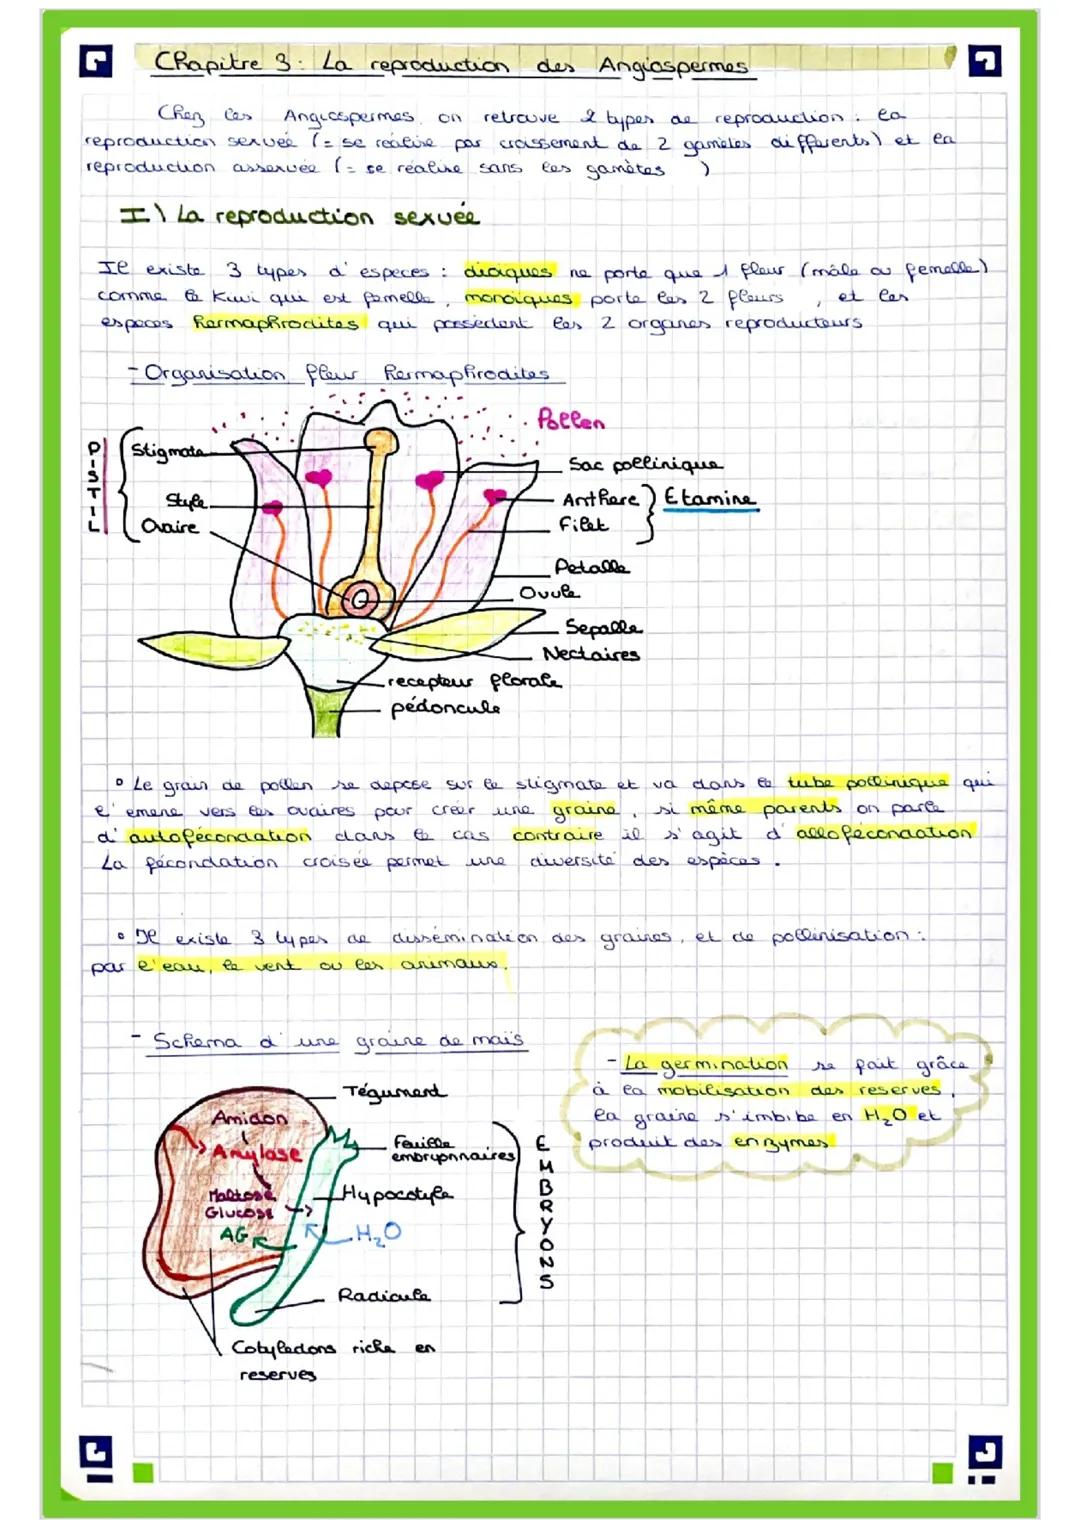 Chapitre 3 : La reproduction des Angiospermes
Chez les Angiospermes, on retrouve 2 types de reproduction : la
reproduction sexuée (= se réalise par croissement de 2 gamètes différents) et la
reproduction assexuée (= se réalise sans les gamètes )
I\ La reproduction sexuée
Il existe 3 types d'especes : dioiques ne porte que 1 fleur (mâle ou femelle)
comme le Kiwi qui est femelle, monoiques porte les 2 fleurs , et les
especes hermaphrodites qui possèdent les 2 organes reproducteurs
- Organisation fleur hermaphrodites
Pollen
PISTIL
Stigmate
Style
Ovaire
Sac pollinique
Anthere
Filet
Etamine
Petalle
Ovule
Sepalle
Nectaires
recepteur florale
pédoncule
° Le grain de pollen se depose sur le stigmate et va dans le tube pollinique qui
l'emene vers les ovaires pour créer une graine, si même parents on parle
d'autofécondation dans le cas contraire il s'agit d'allofécondation
La fécondation croisée permet une diversité des espèces.
° Il existe 3 types de dissémination des graines, et de pollinisation :
par l'eau, le vent ou les animaux.
- Schema d'une graine de maïs
Tégument
Amidon
Amylase
Maltose
Glucose
AG
feuille
embryonnaires
Hypocotyle
H₂O
Radicule
EMBRYONS
Cotyledons riche en
reserves
- La germination se fait grâce
à la mobilisation des reserves,
la graine s'imbibe en H₂O et
produit des enzymes